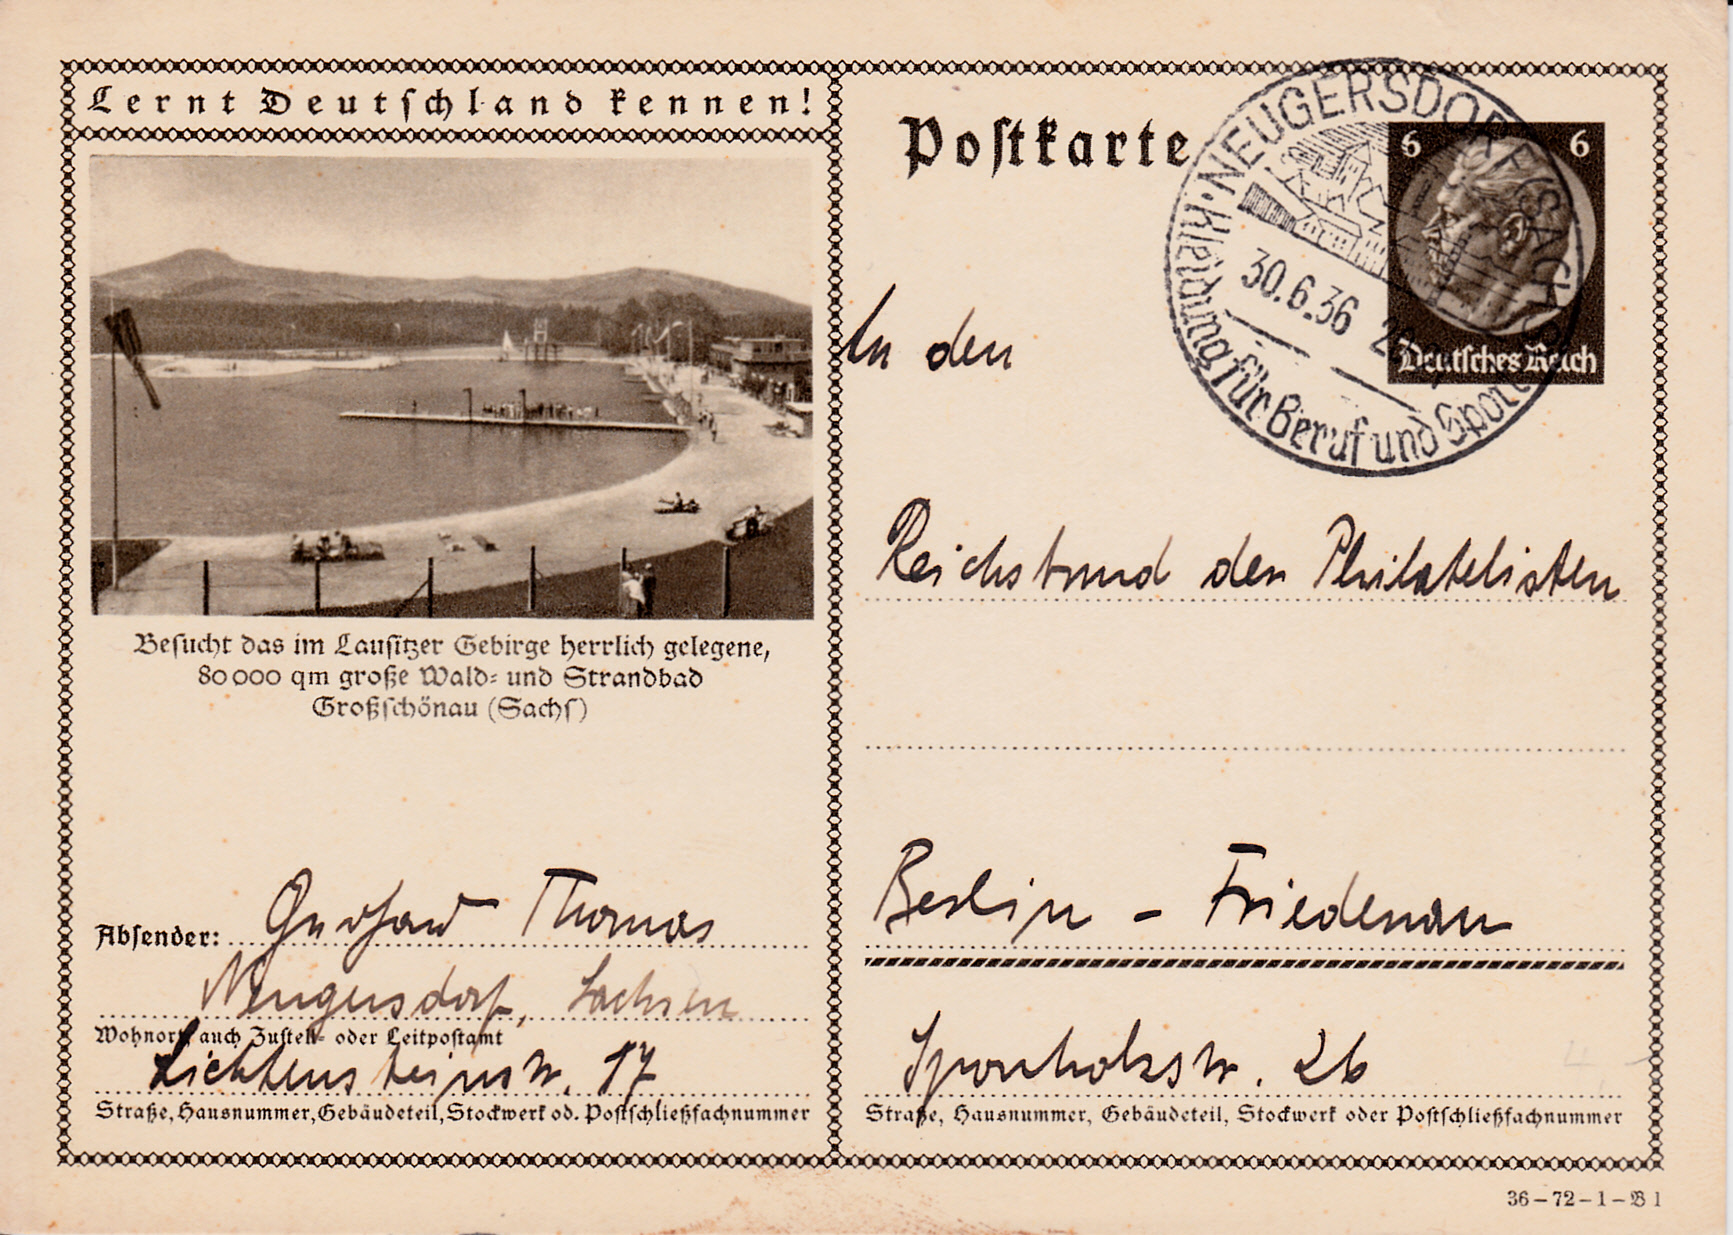 Lernt Deutschland kennen!
Besucht das im Lausitzer Gebirge herrlich gelegene,
80000 qm große Wald- und Strandbad
Großschönau (Sachs)
Absender: Gerhard Thomas
Neugersdorf, Sachsen
Wohnort, auch Zustell- oder Leitpostamt
Lichtensteinstr. 17
Straße, Hausnummer, Gebäudeteil, Stockwerk od. Postschließfachnummer
Postkarte
NEUGERSDORF (SACHS)
30.6.36
Kleidung für Beruf und Sport
6 6
Deutsches Reich
An den
Reichsbund der Philatelisten
Berlin - Friedenau
Sponholzstr. 26
Straße, Hausnummer, Gebäudeteil, Stockwerk oder Postschließfachnummer
36-72-1-B 1